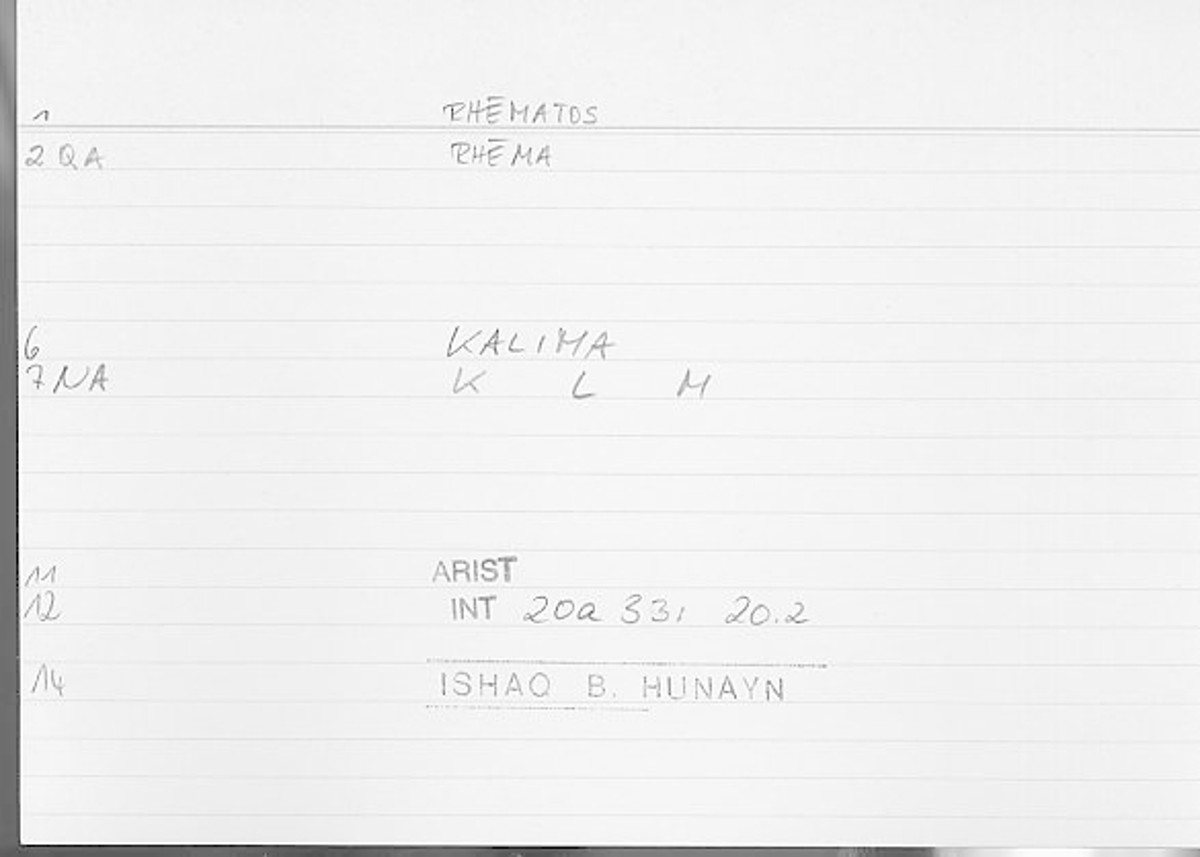 1 RHĒMATOS
2 QA RHĒMA
6 KALIMA
7 NA K L M
11 ARIST
12 INT 20a 33; 20.2
14 ISHAQ B. HUNAYN